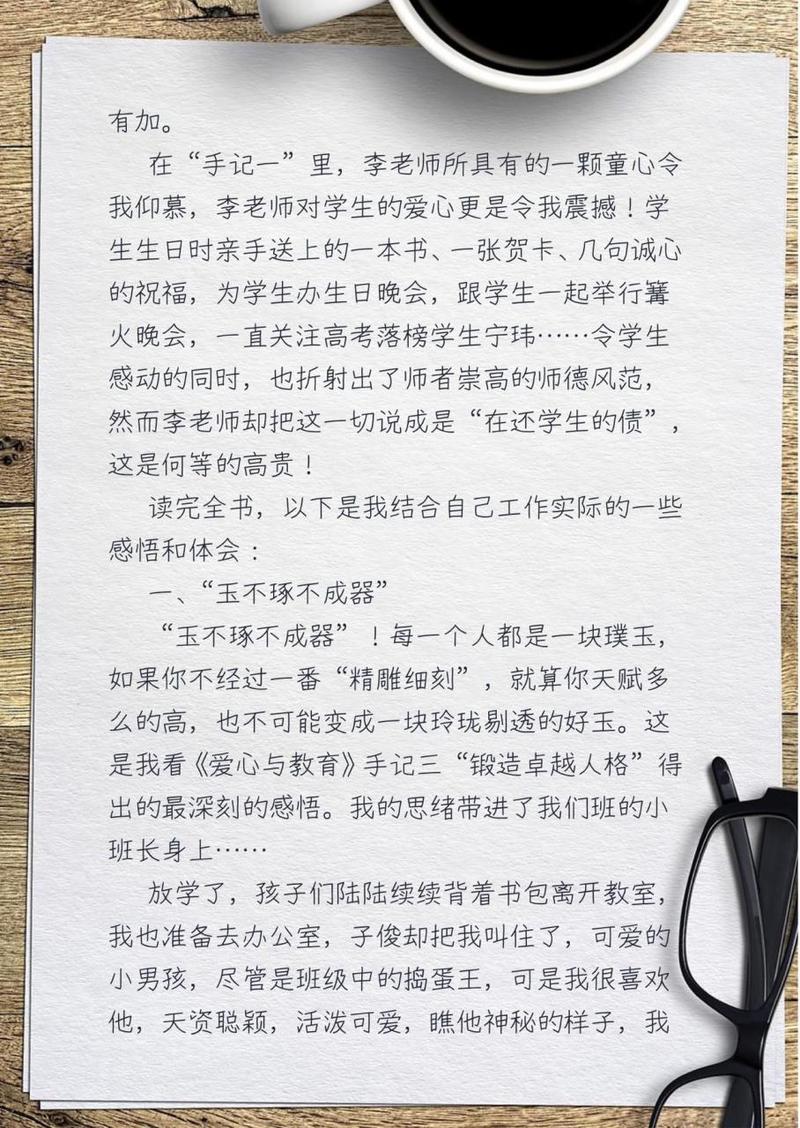 有加。
在“手记一”里，李老师所具有的一颗童心令
我仰慕，李老师对学生的爱心更是令我震撼！学
生生日时亲手送上的一本书、一张贺卡、几句诚心
的祝福，为学生办生日晚会，跟学生一起举行篝
火晚会，一直关注高考落榜学生宁玮……令学生
感动的同时，也折射出了师者崇高的师德风范，
然而李老师却把这一切说成是“在还学生的债”，
这是何等的高贵！
读完全书，以下是我结合自己工作实际的一些
感悟和体会：
一、“玉不琢不成器”
“玉不琢不成器”！每一个人都是一块璞玉，
如果你不经过一番“精雕细刻”，就算你天赋多
么的高，也不可能变成一块玲珑剔透的好玉。这
是我看《爱心与教育》手记三“锻造卓越人格”得
出的最深刻的感悟。我的思绪带进了我们班的小
班长身上……
放学了，孩子们陆陆续续背着书包离开教室，
我也准备去办公室，子俊却把我叫住了，可爱的
小男孩，尽管是班级中的捣蛋王，可是我很喜欢
他，天资聪颖，活泼可爱，瞧他神秘的样子，我